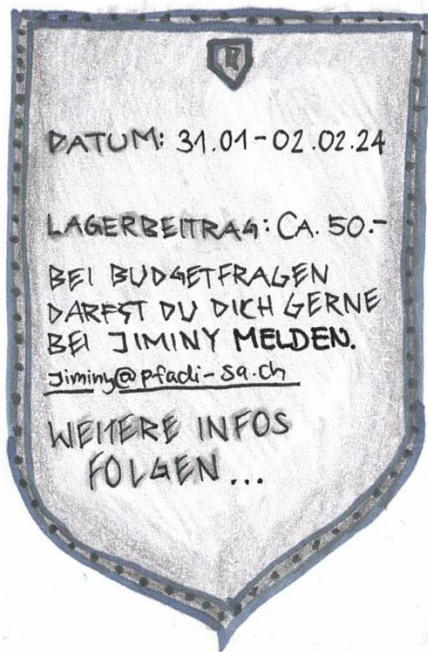 DATUM: 31.01-02.02.24
LAGERBEITRAG: CA. 50.-
BEI BUDGETFRAGEN
DARFST DU DICH GERNE
BEI JIMINY MELDEN.
Jiminy@pfadi-sa.ch
WEITERE INFOS
FOLGEN...